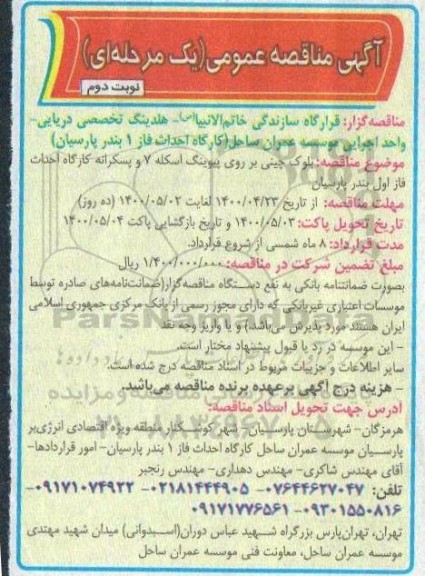 آگهی مناقصه عمومی(یک مرحله‌ای)
نوبت دوم
مناقصه‌گزار: قرارگاه سازندگی خاتم‌الانبیا(ص)- هلدینگ تخصصی دریایی-
واحد اجرایی موسسه عمران ساحل(کارگاه احداث فاز ۱ بندر پارسیان)
موضوع مناقصه: بلوک چینی بر روی پیوینگ اسکله ۷ و پسکرانه کارگاه احداث
فاز اول بندر پارسیان
مهلت مناقصه: از تاریخ ۱۴۰۰/۰۴/۲۳ لغایت ۱۴۰۰/۰۵/۰۲ (ده روز)
تاریخ تحویل پاکت: ۱۴۰۰/۰۵/۰۳ و تاریخ بازگشایی پاکت ۱۴۰۰/۰۵/۰۴
مدت قرارداد: ۸ ماه شمسی از شروع قرارداد.
مبلغ تضمین شرکت در مناقصه: ۱/۴۰۰/۰۰۰/۰۰۰ ریال
بصورت ضمانتنامه بانکی به نفع دستگاه مناقصه‌گزار(ضمانت‌نامه‌های صادره توسط
موسسات اعتباری غیربانکی که دارای مجوز رسمی از بانک مرکزی جمهوری اسلامی
ایران هستند مورد پذیرش می‌باشد.) و یا واریز وجه نقد
- این موسسه در رد یا قبول پیشنهاد مختار است.
سایر اطلاعات و جزییات مربوط در اسناد مناقصه درج شده است.
- هزینه درج آگهی برعهده برنده مناقصه می‌باشد.
آدرس جهت تحویل اسناد مناقصه:
هرمزگان- شهرستان پارسیان- شهر کوشکنار منطقه ویژه اقتصادی انرژی‌بر
پارسیان موسسه عمران ساحل کارگاه احداث فاز ۱ بندر پارسیان- امور قراردادها-
آقای مهندس شاکری- مهندس دهداری- مهندس رنجبر
تلفن: ۰۷۶۴۴۶۲۷۰۴۷- ۰۲۱۸۱۴۴۴۹۰۵- ۰۹۱۷۱۰۷۴۹۲۲-
۰۹۳۰۱۵۵۰۸۱۶- ۰۹۱۷۱۷۷۶۵۶۱
تهران، تهران‌پارس بزرگراه شهید عباس دوران(اسبدوانی) میدان شهید مهتدی
موسسه عمران ساحل، معاونت فنی موسسه عمران ساحل
ParsNamadData